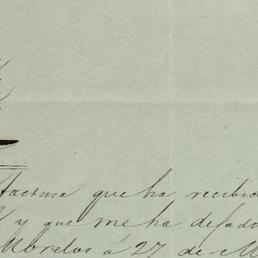 factura que ha recibid
y que me ha dejado
Morelos á 27 de M